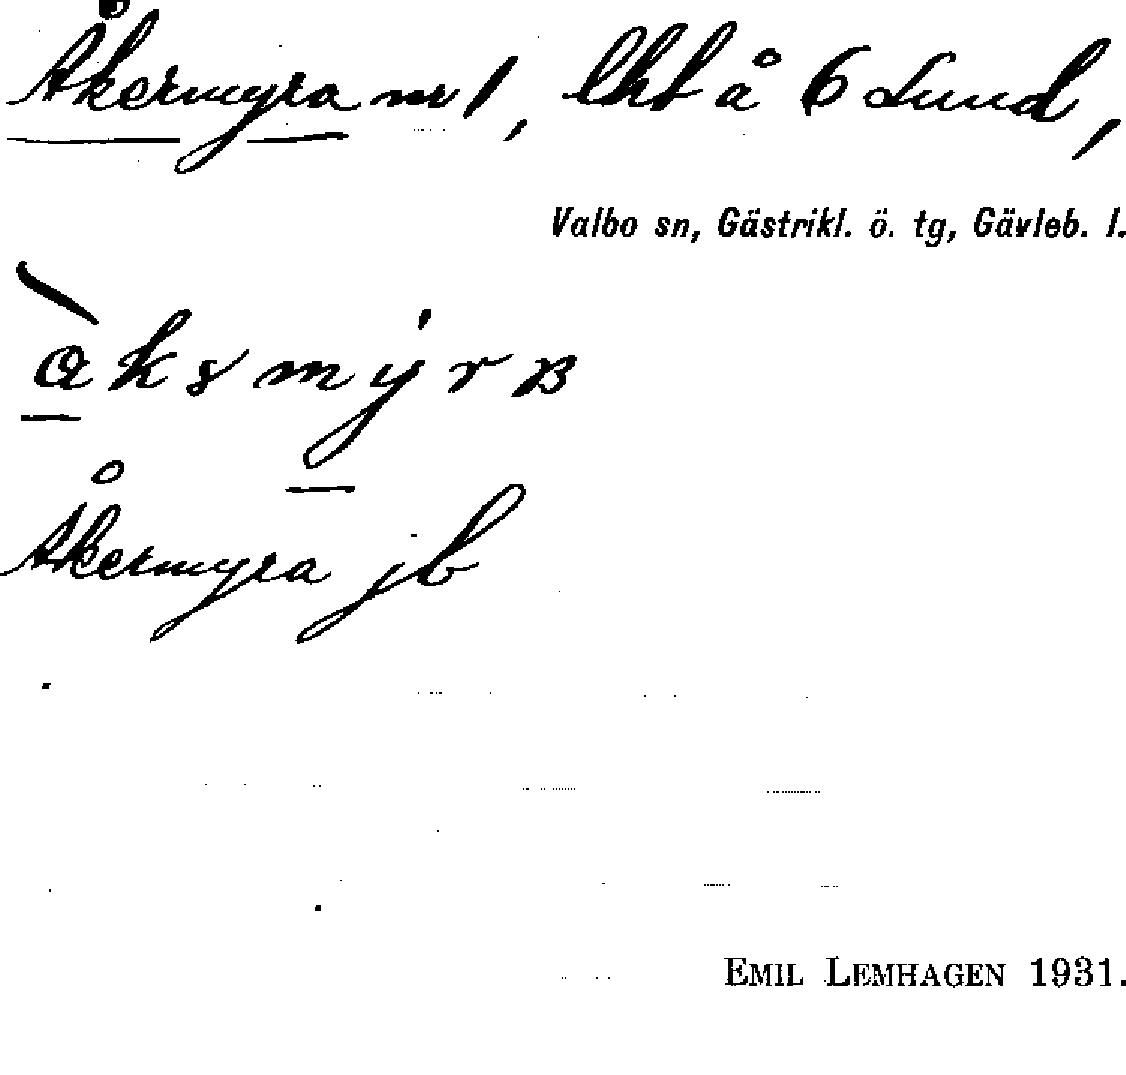 Åkermyra nr 1, lht å 6 Lund,
Valbo sn, Gästrikl. ö. tg, Gävleb. l.
Åkermyra jb
EMIL LEMHAGEN 1931.